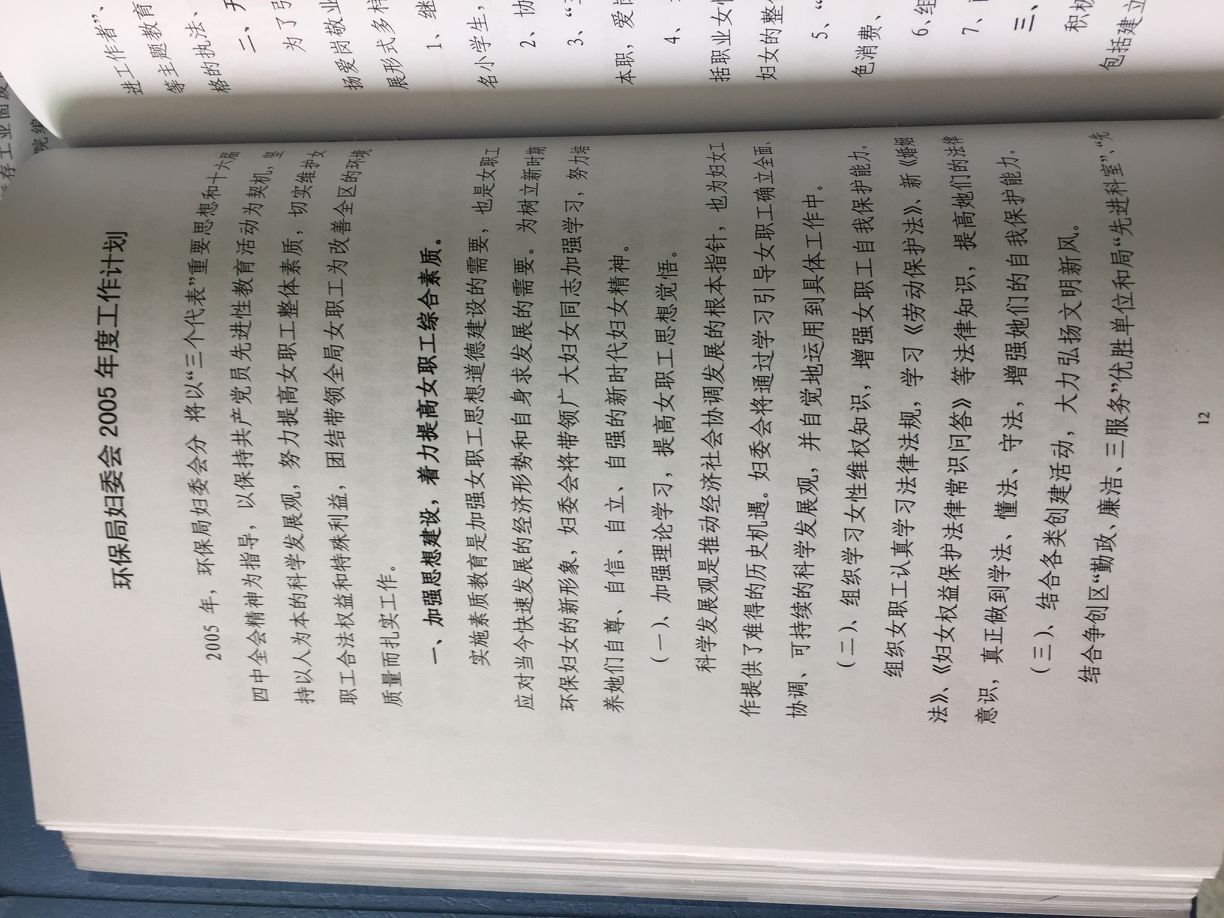 环保局妇委会 2005 年度工作计划
2005 年，环保局妇委会分 将以“三个代表”重要思想和十六届
四中全会精神为指导，以保持共产党员先进性教育活动为契机，坚
持以人为本的科学发展观，努力提高女职工整体素质，切实维护女
职工合法权益和特殊利益，团结带领全局女职工为改善全区的环境
质量而扎实工作。
一、加强思想建设，着力提高女职工综合素质。
实施素质教育是加强女职工思想道德建设的需要，也是女职工
应对当今快速发展的经济形势和自身求发展的需要。为树立新时期
环保妇女的新形象，妇委会将带领广大妇女同志加强学习，努力培
养她们自尊、自信、自立、自强的新时代妇女精神。
（一）、加强理论学习，提高女职工思想觉悟。
科学发展观是推动经济社会协调发展的根本指针，也为妇女工
作提供了难得的历史机遇。妇委会将通过学习引导女职工确立全面、
协调、可持续的科学发展观，并自觉地运用到具体工作中。
（二）、组织学习女性维权知识，增强女职工自我保护能力。
组织女职工认真学习法律法规，学习《劳动保护法》、新《婚姻
法》、《妇女权益保护法律常识问答》等法律知识，提高她们的法律
意识，真正做到学法、懂法、守法，增强她们的自我保护能力。
（三）、结合各类创建活动，大力弘扬文明新风。
结合争创区“勤政、廉洁、三服务”优胜单位和局“先进科室”、“先
12
进工作者”、
等主题教育
格的执法、
二、开
为了引
扬爱岗敬业
展形式多样
1、继
名小学生，
2、协
3、“三
本职，爱岗
4、
括职业女性
妇女的整个
5、“
色消费、
6、组
7、
三、
积极
包括建立
存工业固废
院编